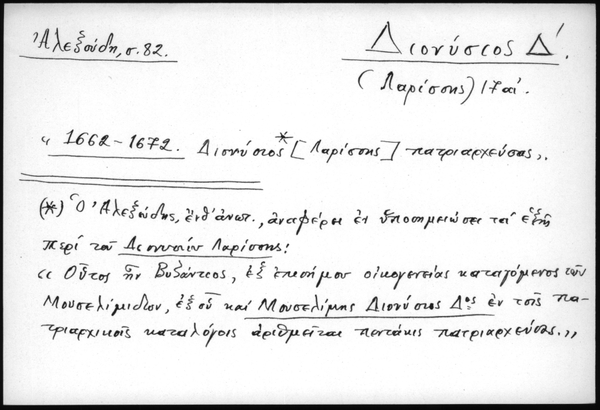 Ἀλεξούδη, σ. 82.
Διονύσιος Δ´.
(Λαρίσσης) 17 αἰ.
« 1662 – 1672. Διονύσιος* [Λαρίσσης] πατριαρχεύσας».
(*) Ὁ Ἀλεξούδης, ἐνθ' ἀνωτ., ἀναφέρει ἐν ὑποσημειώσει τὰ ἑξῆς
περὶ τοῦ Διονυσίου Λαρίσσης:
« Οὗτος ἦν Βυζάντιος, ἐξ ἐπισήμου οἰκογενείας καταγόμενος τῶν
Μουσελιμιδῶν, ἐξ οὗ καὶ Μουσελίμης Διονύσιος Δος ἐν τοῖς πα-
τριαρχικοῖς καταλόγοις ἀριθμεῖται πεντάκις πατριαρχεύσας.»